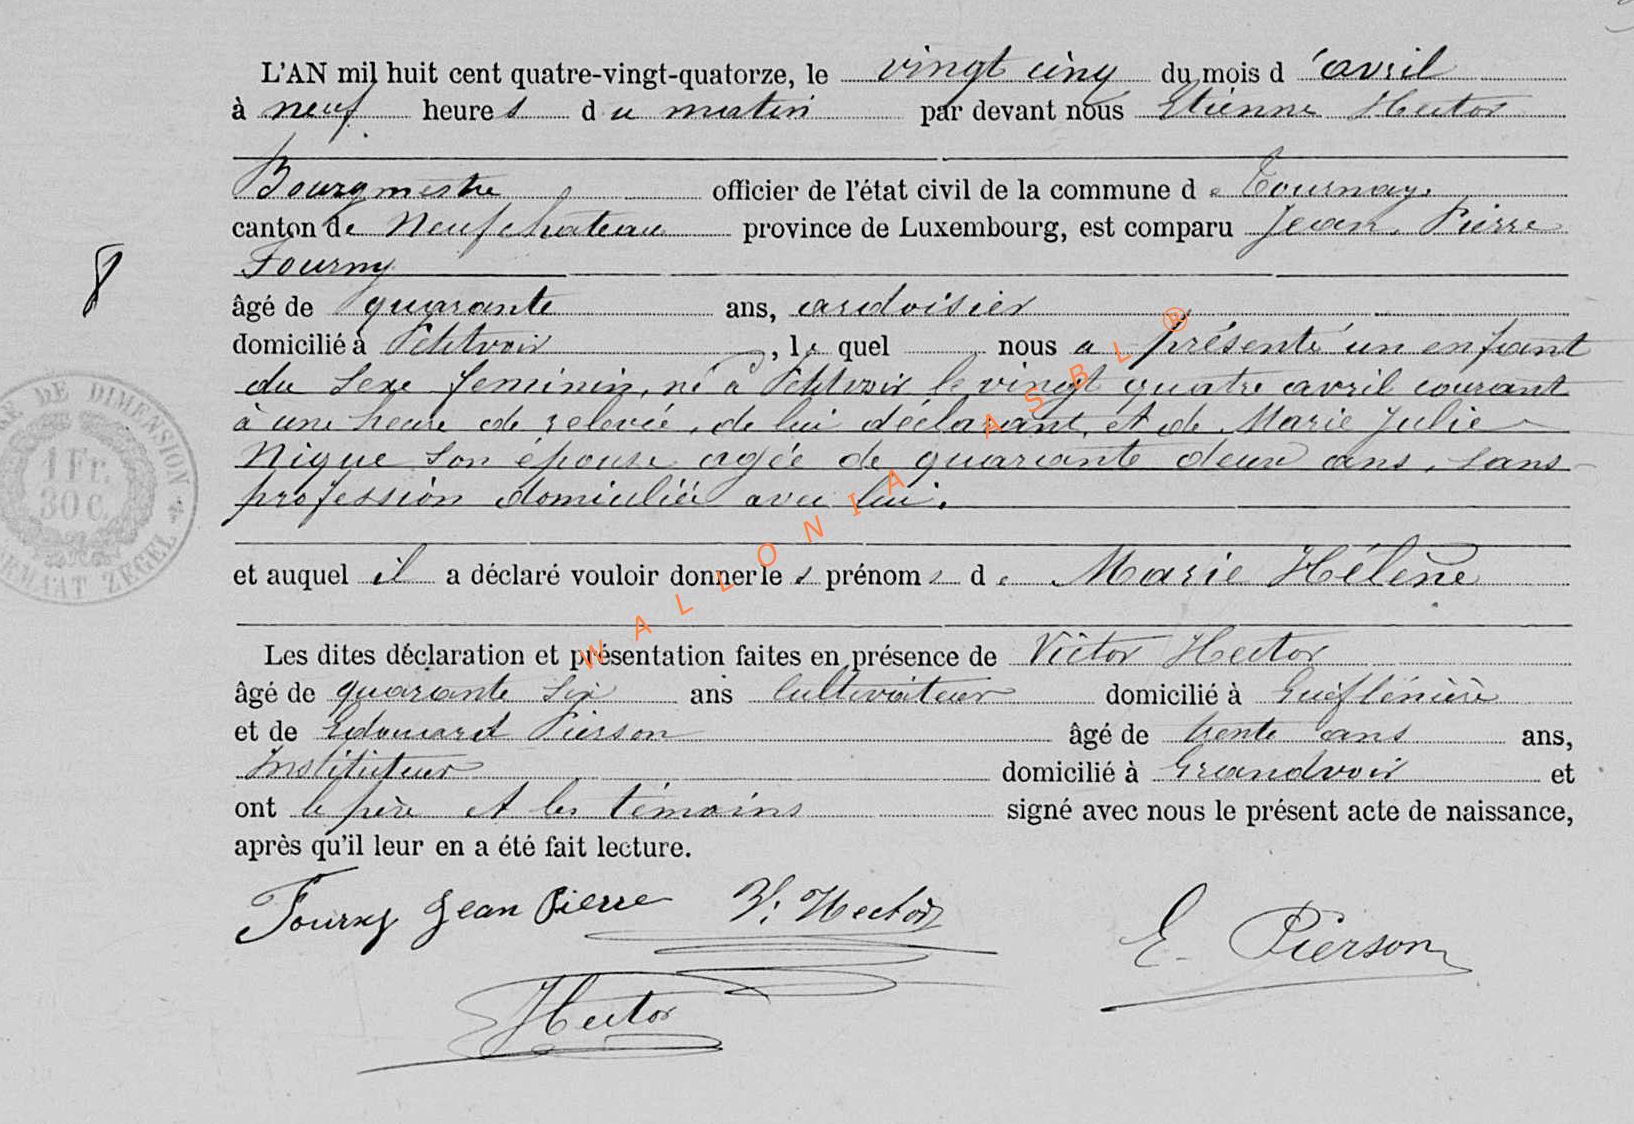 L'AN mil huit cent quatre-vingt-quatorze, le vingt cinq du mois d'avril
à neuf heures du matin par devant nous Etienne Hector
Bourgmestre officier de l'état civil de la commune de Tournay,
canton de Neufchateau province de Luxembourg, est comparu Jean Pierre
Fourny
8
âgé de quarante ans, ardoisier
domicilié à Petitvoir, lequel nous a présenté un enfant
du sexe feminin, né à Petitvoir le vingt quatre avril courant
à une heure de relevée, de lui déclarant, et de Marie Julie
Nique son épouse agée de quarante deux ans, sans
profession domiciliée avec lui.
et auquel il a déclaré vouloir donner les prénoms de Marie Hélène
Les dites déclaration et présentation faites en présence de Victor Hector
âgé de quarante six ans cultivateur domicilié à
et de Edouard Pierson âgé de trente ans ans,
Instituteur domicilié à Grandvoir et
ont le père et les témoins signé avec nous le présent acte de naissance,
après qu'il leur en a été fait lecture.
Fourny Jean Pierre V. Hector
E. Pierson
Hector
DE DIMENSION
1 Fr.
30 C.
ZEGEL
WALLONIA ASBL ®